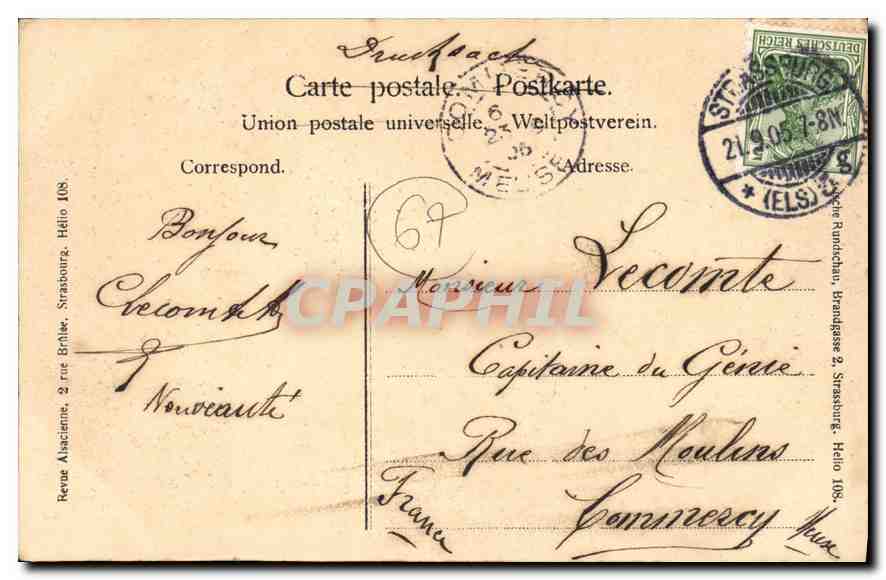 Drucksache
Carte postale. Postkarte.
Union postale universelle. Weltpostverein.
Correspond.
Adresse.
DEUTSCHES REICH
STRASSBURG
21.9.05. 7-8N.
* (ELS.) 3
g
COMMERCY
MEUSE
67
Bonjour
Lecomte
Nouveauté
Monsieur Lecomte
Capitaine du Génie
Rue des Moulins
Commercy Meuse
France
CPAPHIL
Revue Alsacienne, 2 rue Brûlée, Strasbourg. Hélio 108.
Rundschau, Brandgasse 2, Strassburg. Helio 108.